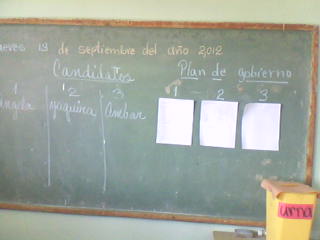 Jueves 13 de septiembre del año 2,012
Candidatos
1 2 3
Angela Yaquira Ambar
Plan de gobierno
1 2 3
urna